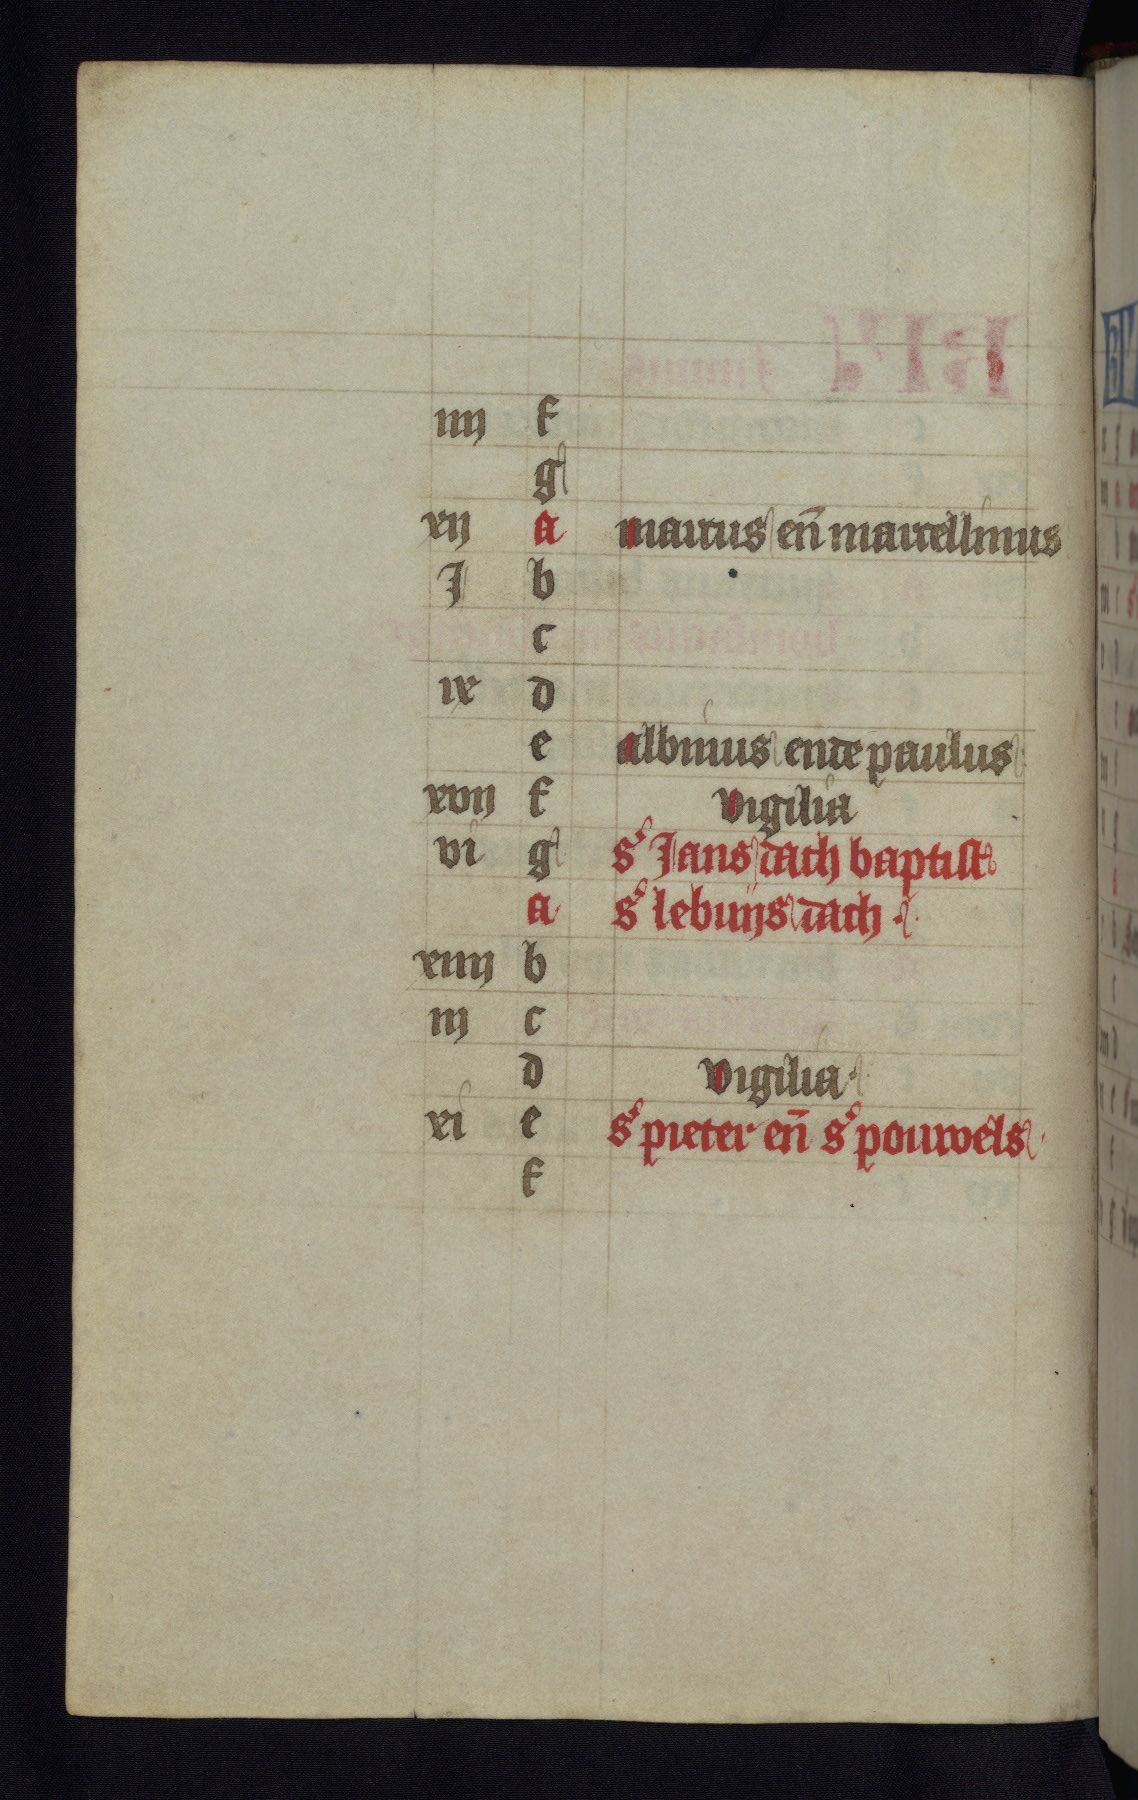 iiij f
g
xij a marcus en̄ marcellinus
J b
c
ix d
e albinus ende paulus
xvij f vigilia
vi g sͤ Jans dach baptistͤ
a sͤ lebuijs dach
xiiij b
iij c
d vigilia
xi e sͤ pieter en̄ sͤ pouwels
f